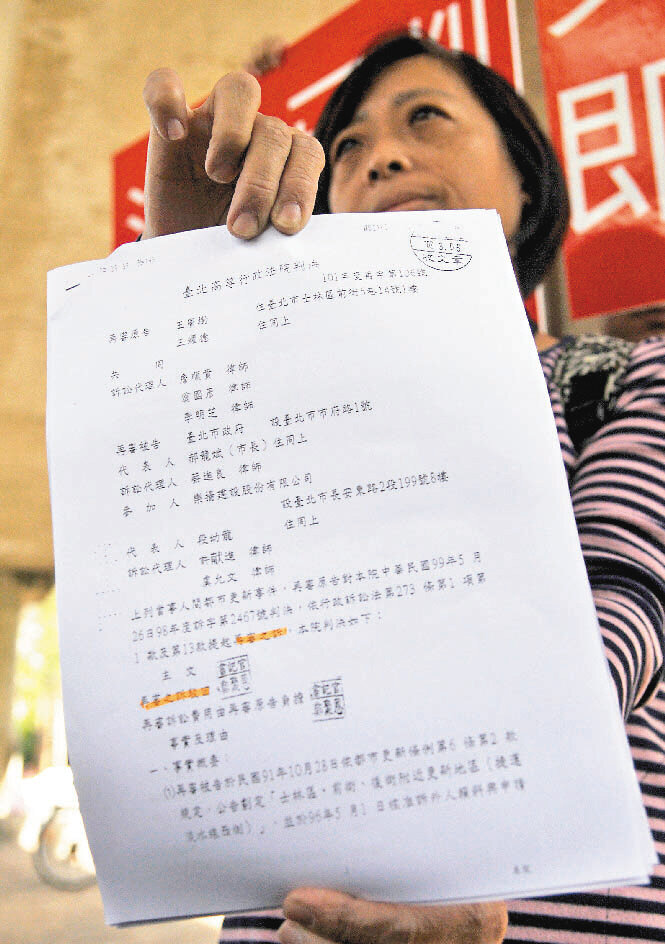 即
102.3.05
收文章
臺北高等行政法院判決
101年度再字第106號
再審原告 王廣樹 住臺北市士林區前街5巷14號1樓
王耀德 住同上
共同
訴訟代理人 詹順貴 律師
翁國彥 律師
李明芝 律師
再審被告 臺北市政府 設臺北市市府路1號
代表人 郝龍斌(市長)住同上
訴訟代理人 蔡進良 律師
參加人 樂揚建設股份有限公司
設臺北市長安東路2段199號8樓
代表人 段幼龍 住同上
訴訟代理人 許獻進 律師
盧允文 律師
上列當事人間都市更新事件,再審原告對本院中華民國99年5月
26日98年度訴字第2467號判決,依行政訴訟法第273條第1項第
1款及第13款提起再審之訴,本院判決如下:
主文
再審之訴駁回。
再審訴訟費用由再審原告負擔
事實及理由
一、事實概要:
(1)再審被告於民國91年10月28日依都市更新條例第6條第2款
規定,公告劃定「士林區、前街、後街附近更新地區(捷運
淡水線西側)」,並於96年5月1日核准訴外人賴科與申請